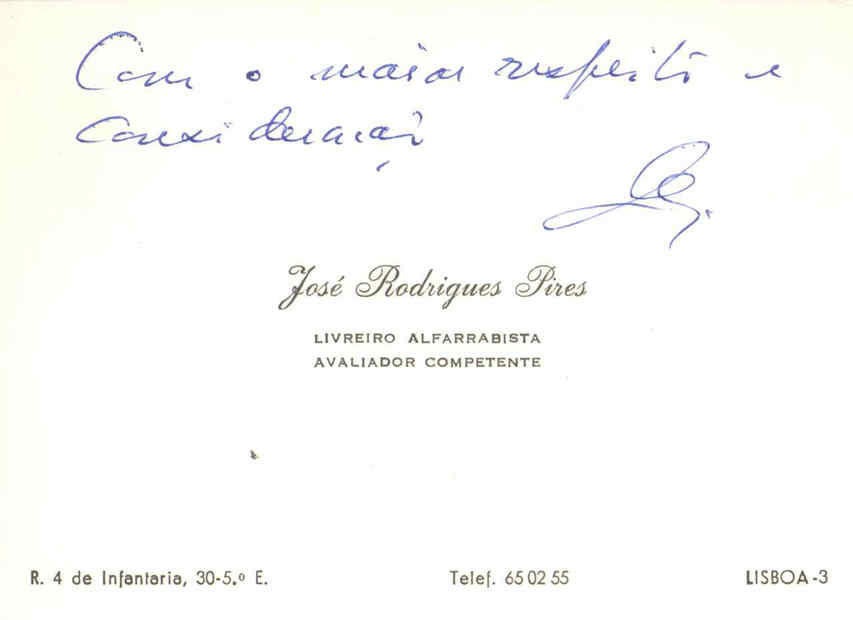 Com o maior respeito e
consideração
José Rodrigues Pires
LIVREIRO ALFARRABISTA
AVALIADOR COMPETENTE
R. 4 de Infantaria, 30-5.º E. Telef. 65 02 55 LISBOA-3